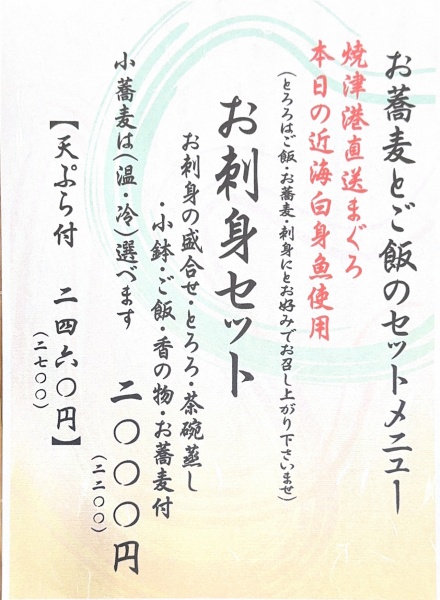 お蕎麦とご飯のセットメニュー
焼津港直送まぐろ
本日の近海白身魚使用
(とろろはご飯・お蕎麦・刺身にとお好みでお召し上がり下さいませ)
お刺身セット
お刺身の盛合せ・とろろ・茶碗蒸し
・小鉢・ご飯・香の物・お蕎麦付
小蕎麦は(温・冷)選べます
二〇〇〇円
(二二〇〇)
【天ぷら付 二四六〇円】
(二七〇〇)